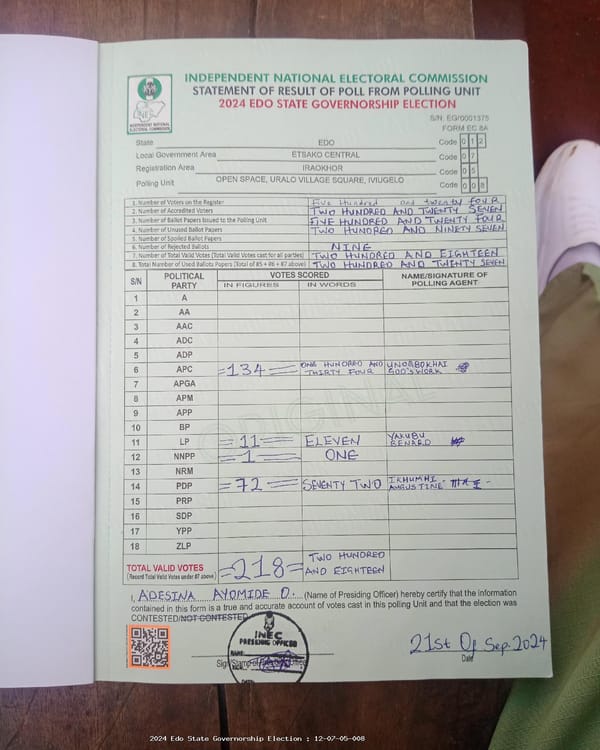 INDEPENDENT NATIONAL ELECTORAL COMMISSION
STATEMENT OF RESULT OF POLL FROM POLLING UNIT
2024 EDO STATE GOVERNORSHIP ELECTION
INEC
INDEPENDENT NATIONAL ELECTORAL COMMISSION
S/N: EG/0001375
FORM EC 8A
State EDO Code 0 1 2
Local Government Area ETSAKO CENTRAL Code 0 7
Registration Area IRAOKHOR Code 0 5
Polling Unit OPEN SPACE, URALO VILLAGE SQUARE, IVIUGELO Code 0 0 8
1. Number of Voters on the Register Five Hundred and twenty four
2. Number of Accredited Voters TWO HUNDRED AND TWENTY SEVEN
3. Number of Ballot Papers Issued to the Polling Unit FIVE HUNDRED AND TWENTY FOUR
4. Number of Unused Ballot Papers TWO HUNDRED AND NINETY SEVEN
5. Number of Spoiled Ballot Papers
6. Number of Rejected Ballots NINE
7. Number of Total Valid Votes (Total Valid Votes cast for all parties) TWO HUNDRED AND EIGHTEEN
8. Total Number of Used Ballots Papers (Total of #5 + #6 + #7 above) TWO HUNDRED AND TWENTY SEVEN
S/N POLITICAL PARTY VOTES SCORED NAME/SIGNATURE OF POLLING AGENT
IN FIGURES IN WORDS
1 A
2 AA
3 AAC
4 ADC
5 ADP
6 APC =134= ONE HUNDRED AND THIRTY FOUR UNOMBOKHAI GOD'SWORK
7 APGA
8 APM
9 APP
10 BP
11 LP =11= ELEVEN YAKUBU BENARD
12 NNPP =1= ONE
13 NRM
14 PDP =72= SEVENTY TWO IKHUMHI AUGUSTINE
15 PRP
16 SDP
17 YPP
18 ZLP
ORIGINAL
TOTAL VALID VOTES =218= TWO HUNDRED AND EIGHTEEN
(Record Total Valid Votes under #7 above)
I, ADESINA AYOMIDE O. (Name of Presiding Officer) hereby certify that the information
contained in this form is a true and accurate account of votes cast in this polling Unit and that the election was
CONTESTED/NOT CONTESTED
INEC
PRESIDING OFFICER
NAME:
DATE:
21st Of Sep. 2024
Date
2024 Edo State Governorship Election : 12-07-05-008